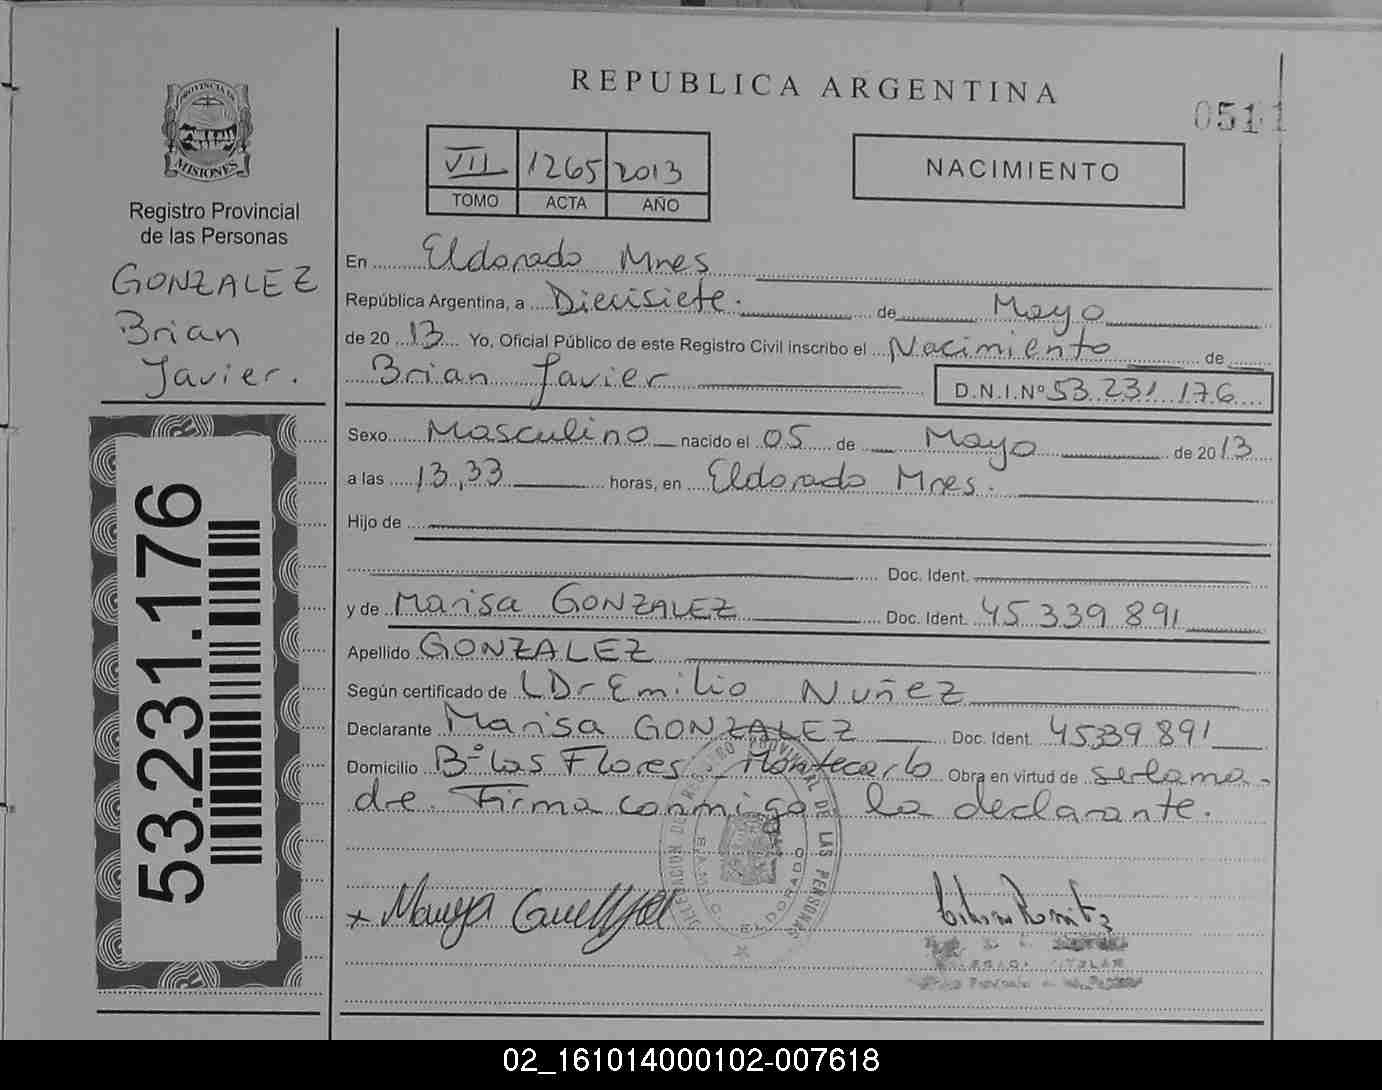 REPUBLICA ARGENTINA
0511
PROVINCIA DE
MISIONES
Registro Provincial
de las Personas
GONZALEZ
Brian
Javier.
53.231.176
VII 1265 2013
TOMO ACTA AÑO
NACIMIENTO
En Eldorado Mnes
República Argentina, a Diecisiete. de Mayo
de 20 13 Yo, Oficial Público de este Registro Civil inscribo el Nacimiento de
Brian Javier D.N.I.Nº 53.231.176
Sexo Masculino nacido el 05 de Mayo de 20 13
a las 13,33 horas, en Eldorado Mnes.
Hijo de
Doc. Ident.
y de Marisa GONZALEZ Doc. Ident. 45 339 891
Apellido GONZALEZ
Según certificado de Dr Emilio Nuñez
Declarante Marisa GONZALEZ Doc. Ident. 45339 891
Domicilio Bº las Flores Montecarlo Obra en virtud de ser la ma-
dre. Firma conmigo la declarante.
PROVINCIAL DE LAS PERSONAS
ELDORADO
02_161014000102-007618